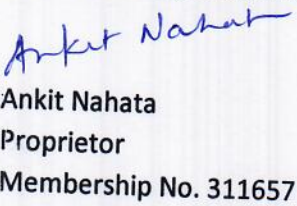 Ankit Nahata
Ankit Nahata
Proprietor
Membership No. 311657